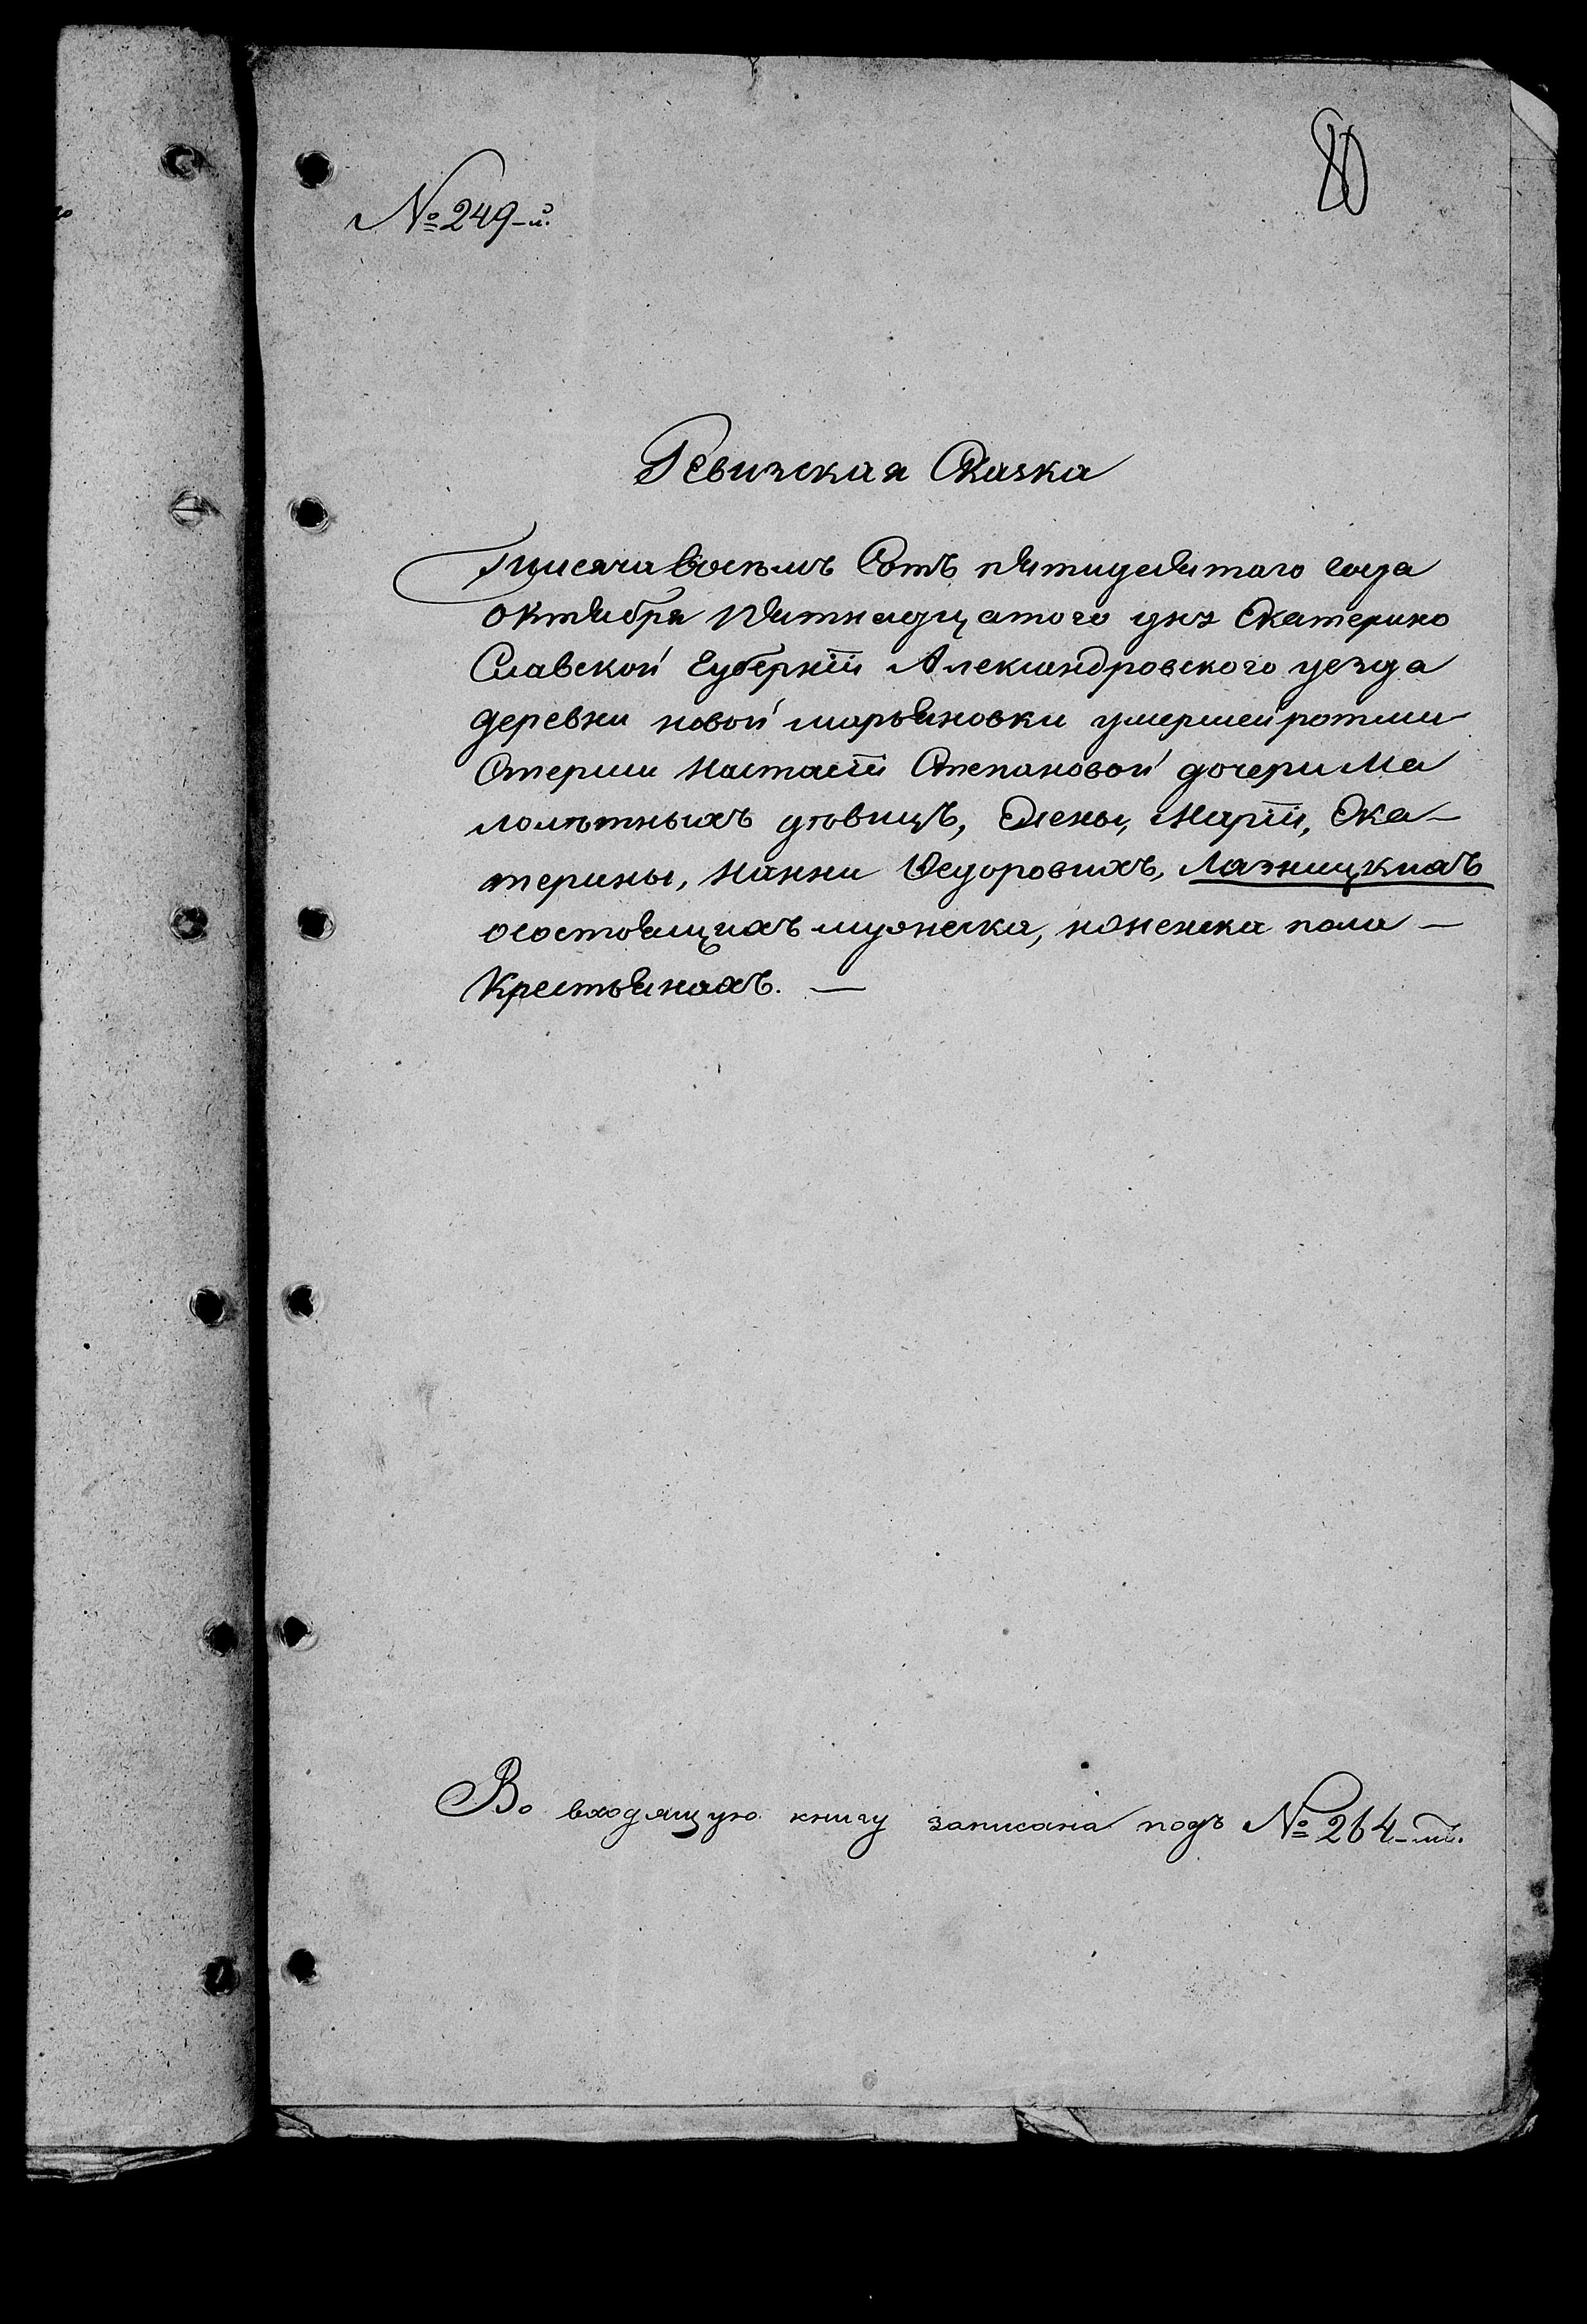 80
№ 249-й.
Ревизская Сказка
Тысяча восемъ Сотъ пятидесятого года
октября пятнадцатого дня Екатерино
Славской Губерніи Александровского уезда
деревни новой марьяновки умершей ротми
Стерши Настасіи Степановой дочери Ма
лолѣтныхъ дѣвицъ, Елены, Маріи, Ека-
терины, Иянни Федоровихъ, Лазницкихъ
осостоящихъ мужеска, иженска пола —
Крестьянахъ. —
Во входящую книгу записана подъ № 264-мъ.